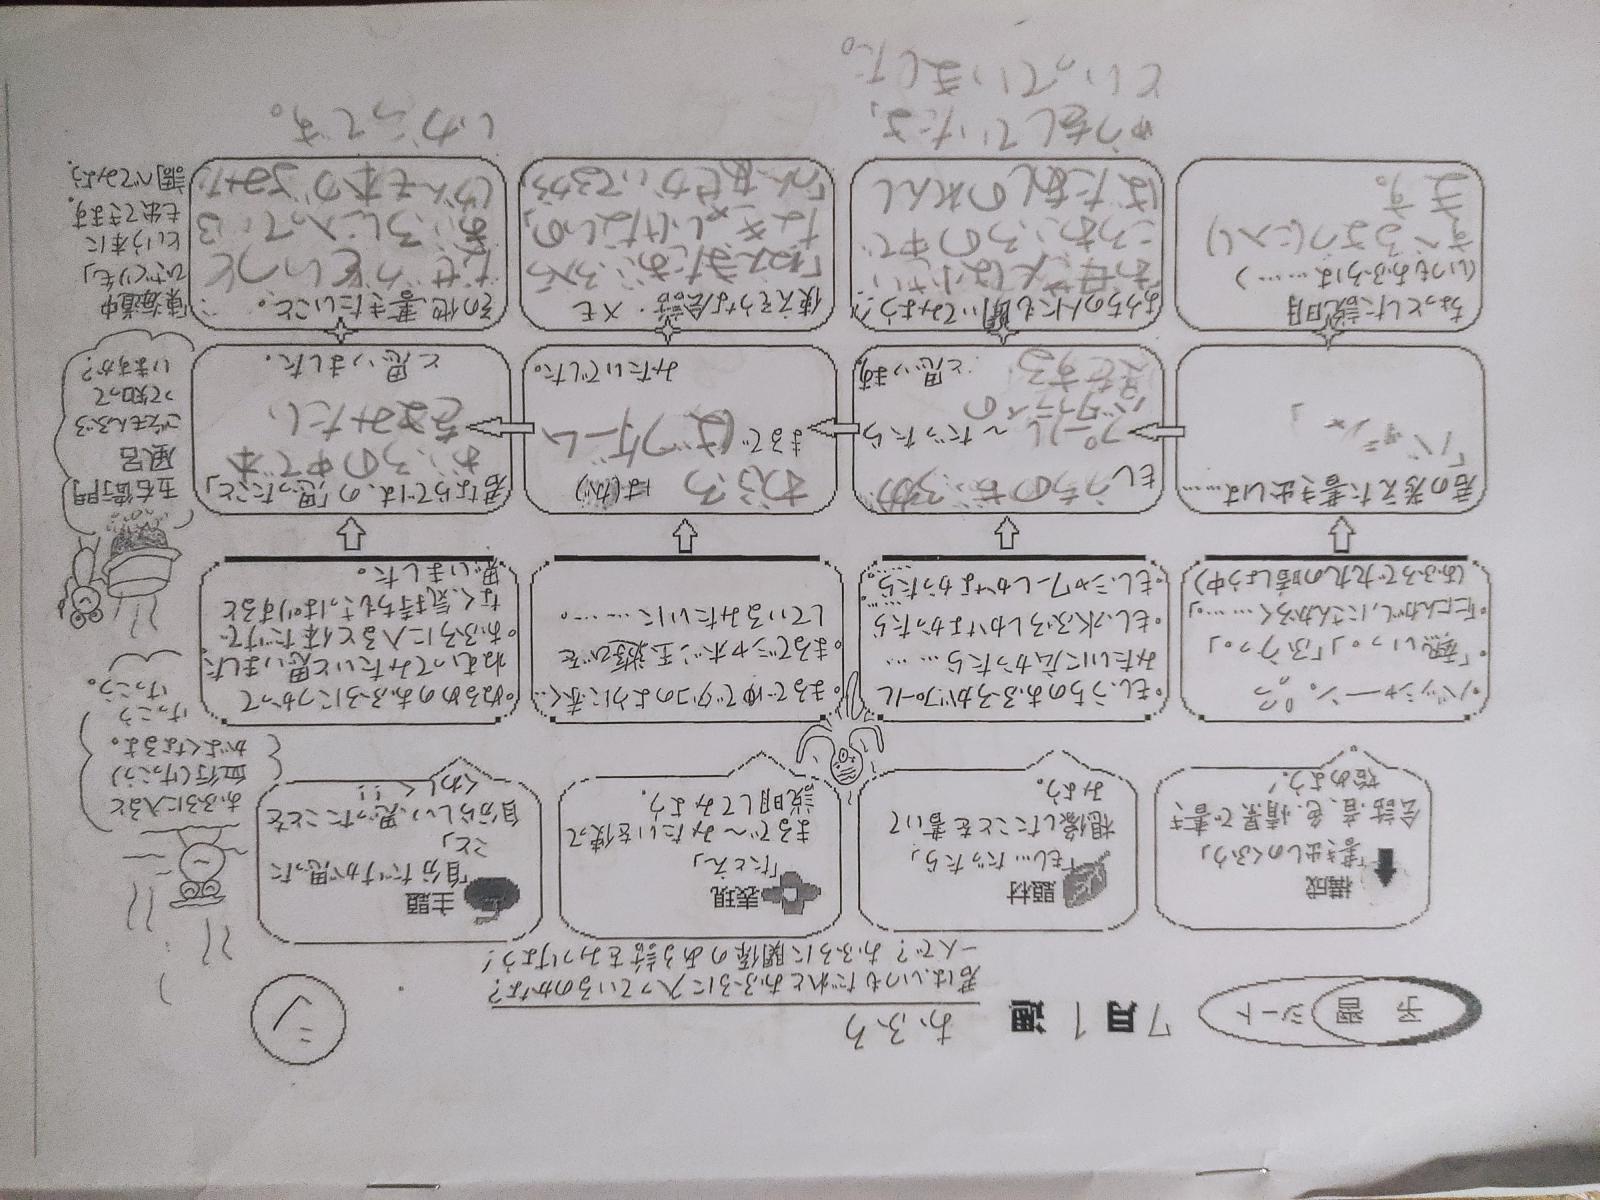 予習シート
7月1週
おふろ
シ
君は、いつもだれとおふろに入っているのかな?
一人で?おふろに関係のある話をみつけよう!
構成
「書き出しのくふう」
会話、音、色、情景で書き
始めよう!
題材
「もし…だったら」
想像したことを書いて
みよう。
表現
「たとえ」
まるで〜みたいを使って
説明してみよう。
主題
「自分だけが思った
こと」
自分らしい、思ったことを
くわしく!!
おふろに入ると
血行(けっこう)
がよくなるよ。
けっこう
けっこう。
バッシャーン。
「熱いっ。」「ふうっ。」
ににんがし、にさんがろく……。
(おふろで九九の暗しょう中)
もし、うちのおふろがプール
みたいに広かったら……
もし、水ぶろしかなかったら
もし、シャワーしかなかったら。
まるでゆでダコのように赤く…
まるでシャボン玉遊びを
しているみたいに……。
ぬるめのおふろにつかって
ねむってみたいと思いました
おふろに入ると体だけで
なく、気持ちもさっぱりすると
思いました。
君の考えた書き出しは……
もし
うちのおふろが
プールし
〜だったら
バタフライの
と思います
おふろ
は(が)
まるで
ばつゲーム
みたいでした。
君ならではの、「思ったこと」
おふろの中で本
をよみたい
と思いました。
五右衛門
風呂
ごえもんぶろ
って知って
いますか?
東海道中
ひざくりもも」
という本に
も出てきます。
調べてみよう。
ちょっとした説明
(いつもおふろは……)
すべるように入り
ます。
おうちの人にも聞いてみよう!
お母さんは小さい
ころおふろの中で
ばたあしのれんし
ゅうをしていたよ、
といっていました。
使えそうな会話・メモ
その他、書きたいこと。
なぜかというと
おふろに入っている
じかんも本がよみた
いからです。